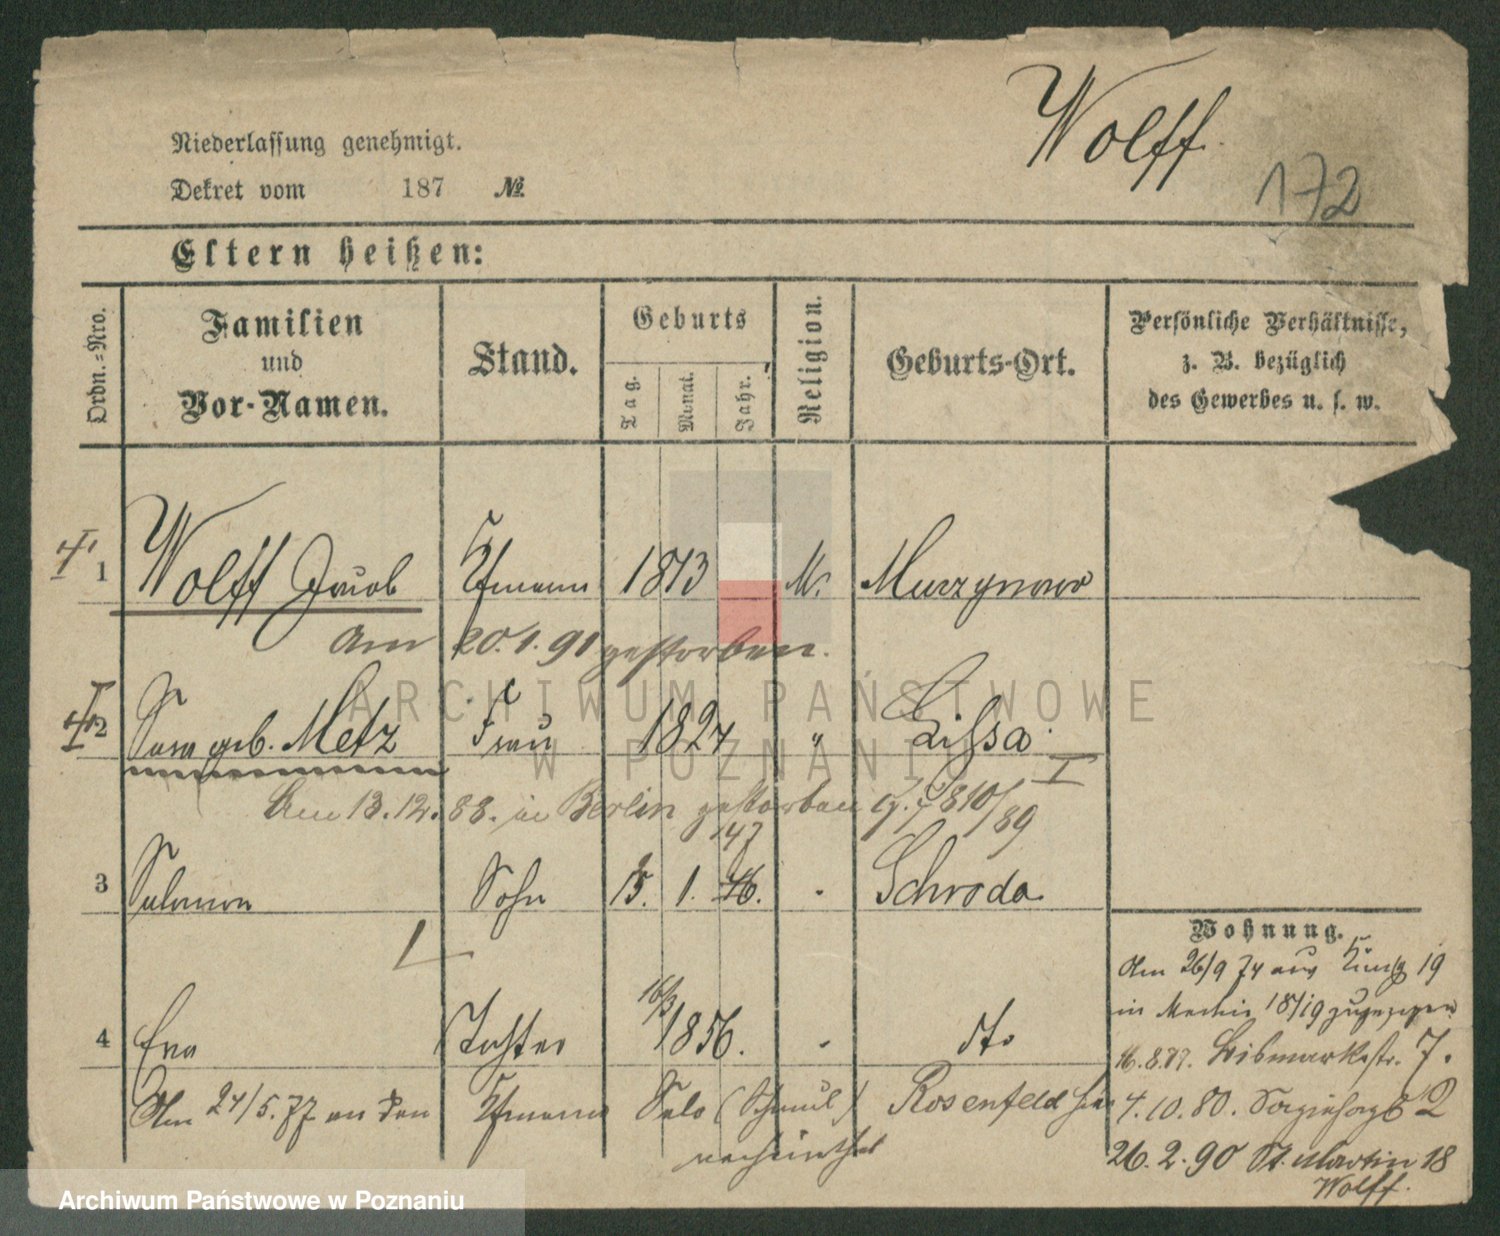 Wolff.
172
Niederlassung genehmigt.
Dekret vom 187 №
Eltern heißen:
Ordn.=Nro.
Familien
und
Vor-Namen.
Stand.
Geburts
Tag.
Monat.
Jahr.
Religion.
Geburts-Ort.
Persönliche Verhältnisse,
z. B. bezüglich
des Gewerbes u. s. w.
1 Wolff Jacob Kfmann 1813 M. Murzynowo
Am 20.1.91 gestorben.
2 Sara geb. Metz Frau 1824 " Lissa
Am 13.12.88. in Berlin gestorben
810/89
147
3 Salomon Sohn 1. 46. Schroda
Wohnung.
Am 26/9 74 aus 19
in 18/19 zugezogen
4 Eva Tochter 16/3 1856. dto
16.8.77. Bismarkstr. 7.
Am 24/5.77 an den Kfmann Salo (Schmul) Rosenfeld hier
verheirathet
4.10.80. 2
26.2.90 St. Martin 18
Wolff.
ARCHIWUM PAŃSTWOWE
W POZNANIU
Archiwum Państwowe w Poznaniu